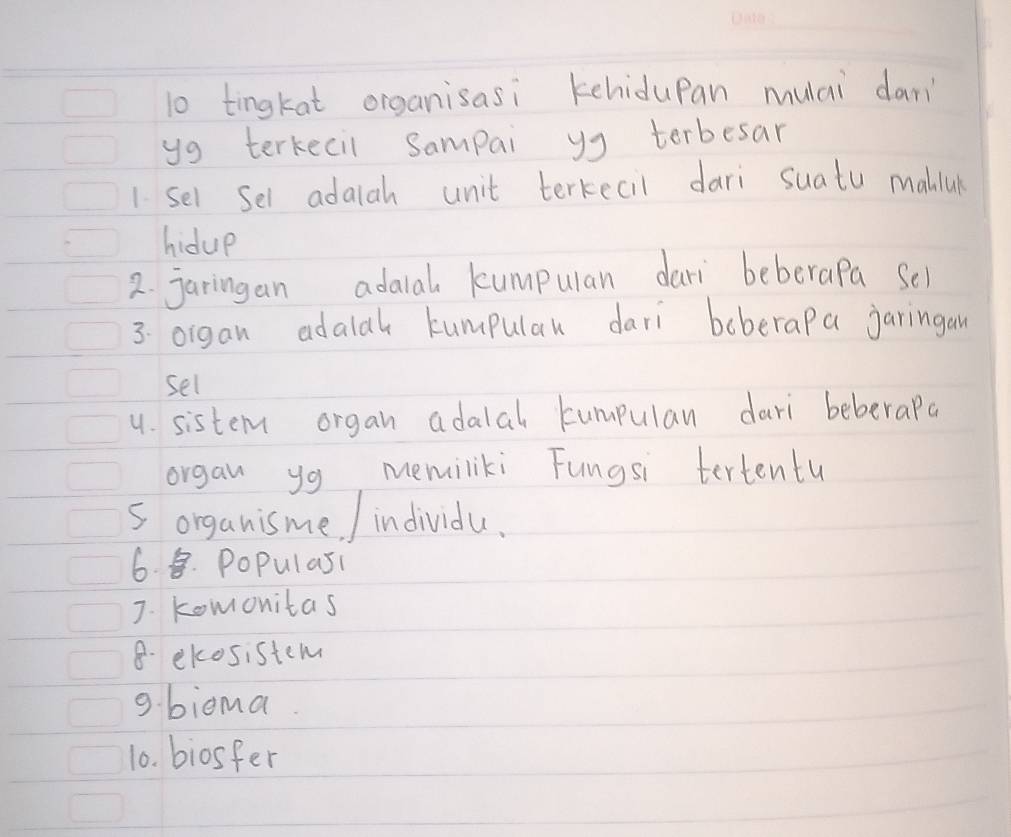 Date :
10 tingkat organisasi kehidupan mulai dari
yg terkecil sampai yg terbesar
1. sel sel adalah unit terkecil dari suatu mahluk
hidup
2. jaringan adalah kumpulan dari beberapa sel
3. organ adalah kumpulan dari beberapa jaringan
sel
4. sistem organ adalah kumpulan dari beberapa
organ yg memiliki Fungsi tertentu
5 organisme / individu.
6. 8. Populasi
7. komonitas
8. ekosistem
9. bioma.
10. biosfer